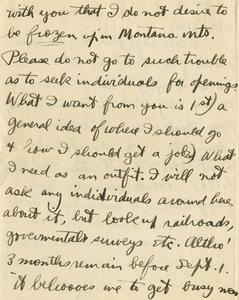 with you that I do not desire to
be frozen up in Montana mts.
Please do not go to such trouble
as to seek individuals for openings.
What I want from you is 1st) a
general idea of where I should go
& how I should get a job) What
I need as an outfit. I will not
ask any individuals around here
about it, but look up railroads,
governmental surveys etc. Altho'
3 months remain before Sept. 1.
it behooves me to get busy now